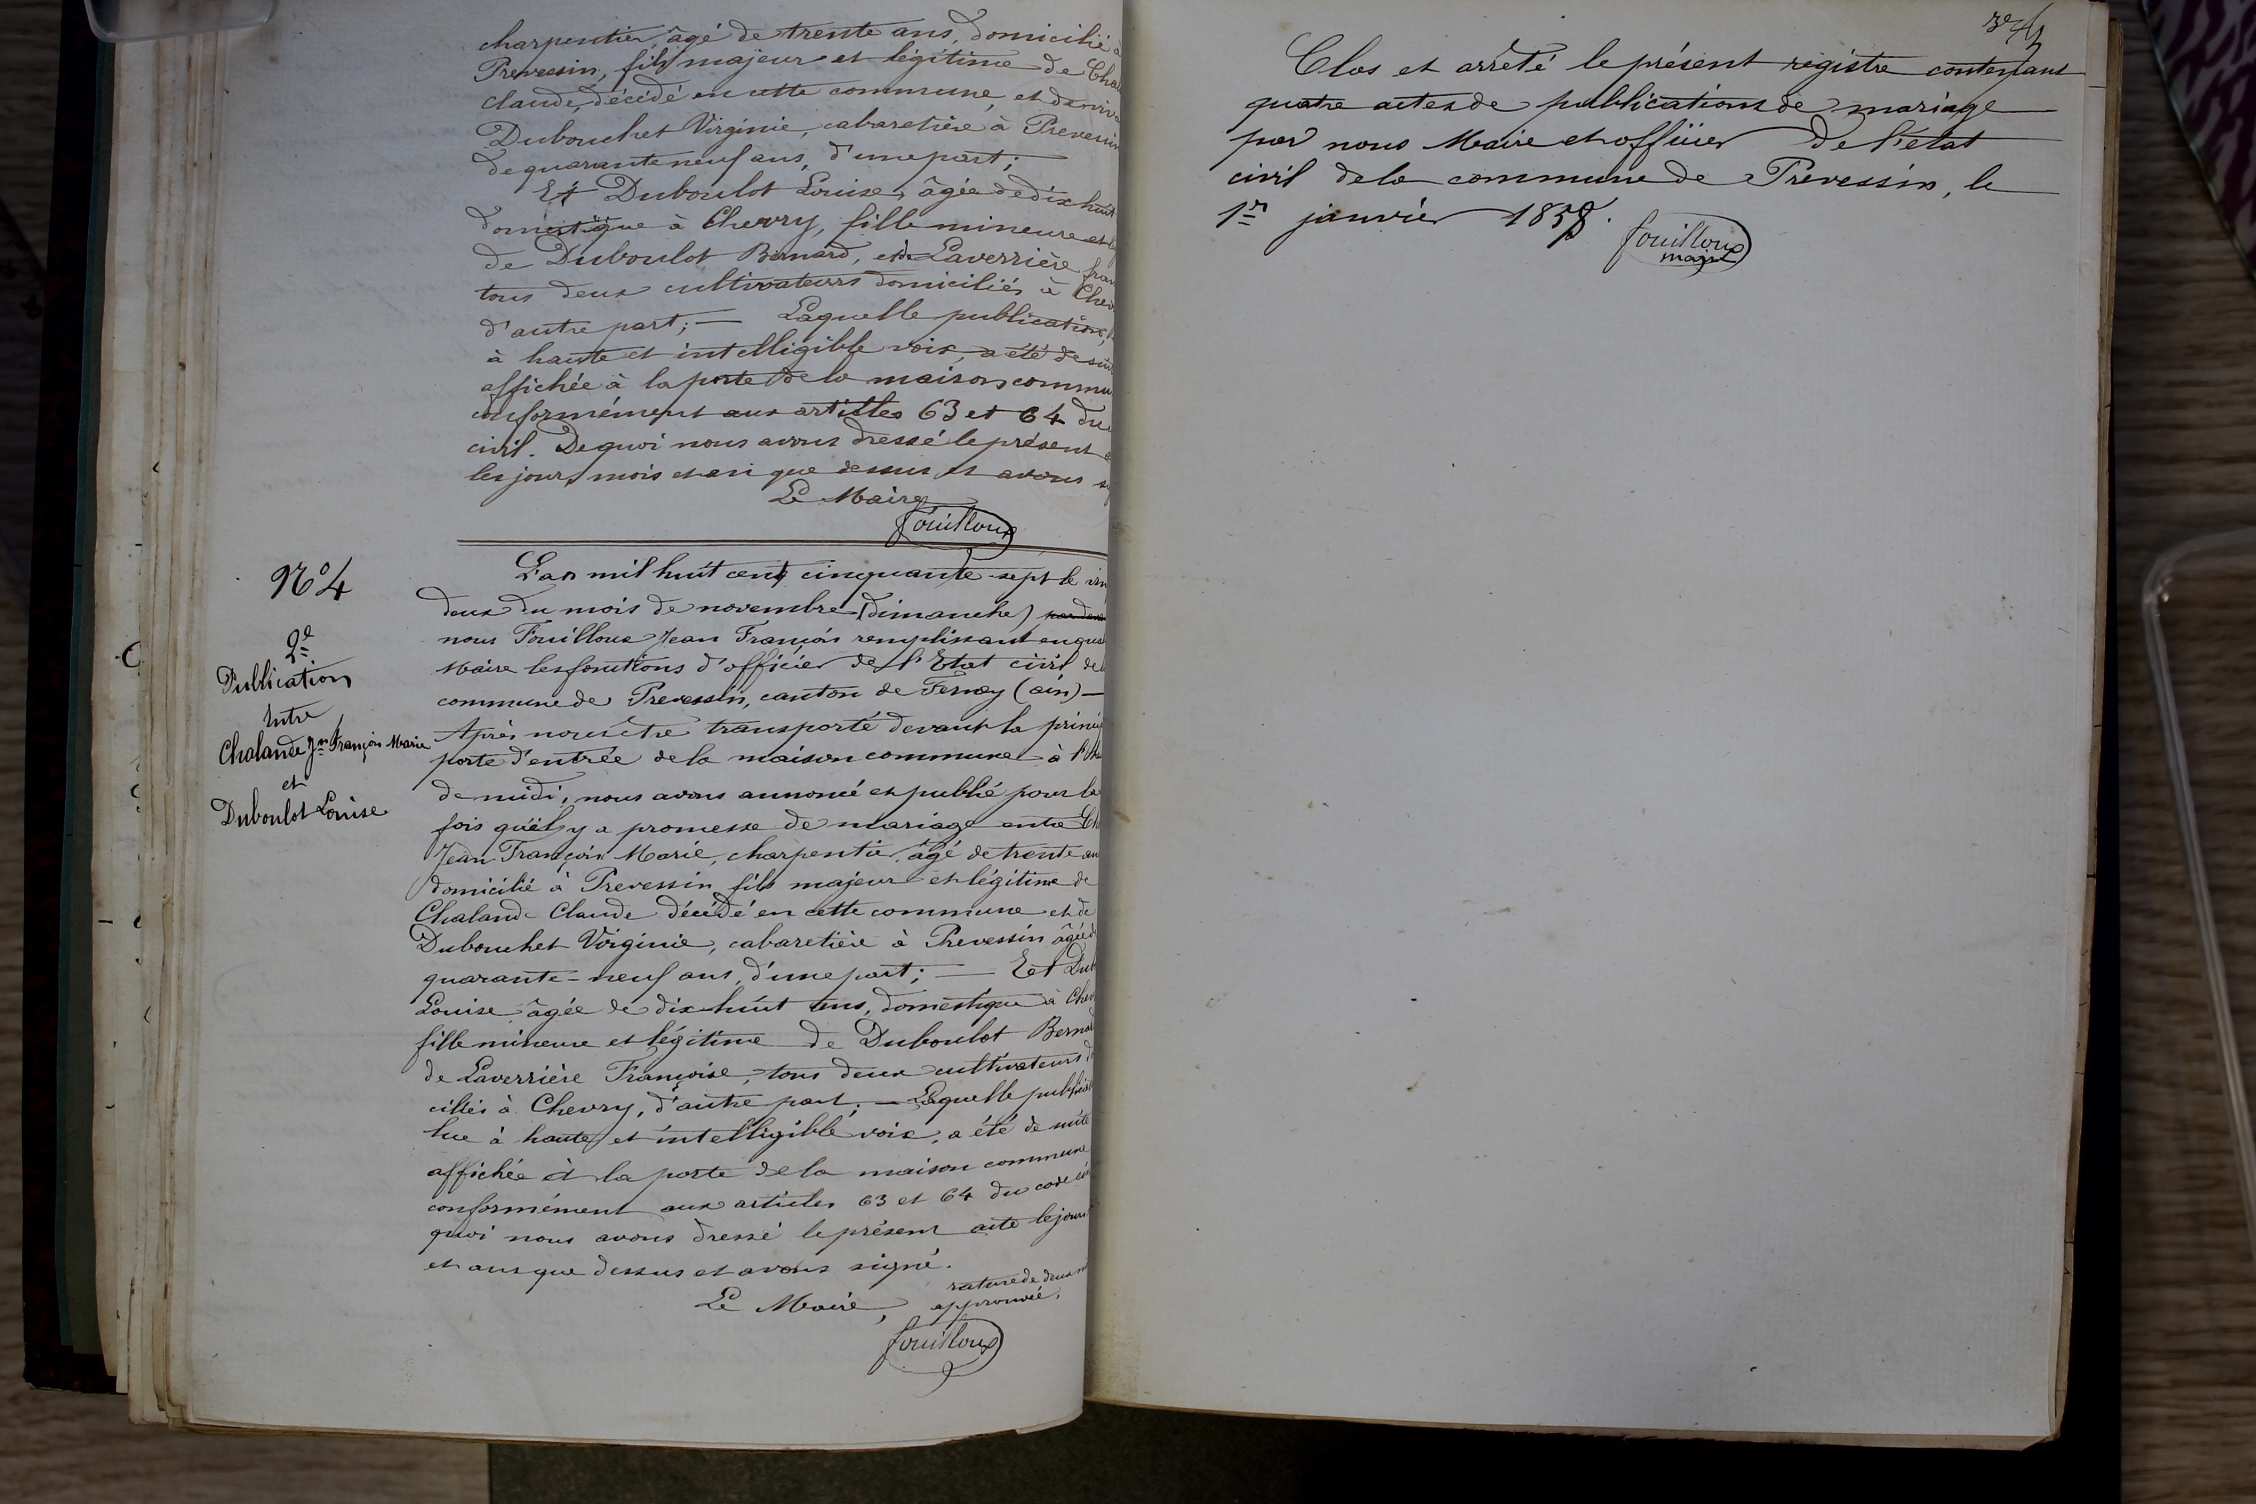 charpentier, âgé de trente ans, domicilié à
Prevessin, fils majeur et légitime de Cha
Claude, décédé en cette commune, et
Dubouchet Virginie, cabaretière à Prevessin
de quarante neuf ans, d'une part; —
Et Duboulot Louise, âgée de dix huit
domestique à Chevry, fille mineure et
de Duboulot Bernard, et de Laverrière fran
tous deux cultivateurs domiciliés à Chev
d'autre part; — Laquelle publication,
à haute et intelligible voix, a été de suit
affichée à la porte de la maison commu
conformément aux articles 63 et 64 du
civil. De quoi nous avons dressé le présent
les jour, mois et an que dessus et avons
Le Maire
fouilloux
N° 4
2e
Publication
Entre
Chaland Jn François Marie
et
Duboulot Louise
L'an mil huit cent cinquante sept le vin
deux du mois de novembre (dimanche)
nous Fouilloux Jean François remplissant en qua
Maire les fonctions d'officier de l'Etat civil de
commune de Prevessin, canton de Fernay (ain) —
Après nous être transporté devant la princi
porte d'entrée de la maison commune à l'h
de midi, nous avons annoncé et publié pour la
fois qu'il y a promesse de mariage entre Ch
Jean François Marie, charpentier, âgé de trente an
domicilié à Prevessin fils majeur et légitime de
Chaland Claude décédé en cette commune et de
Dubouchet Virginie, cabaretière à Prevessin âgée d
quarante-neuf ans, d'une part; — Et Dub
Louise âgée de dix huit ans, domestique à Chev
fille mineure et légitime de Duboulot Berna
de Laverrière Françoise, tous deux cultivateurs d
ciliés à Chevry, d'autre part; — Laquelle publica
lue à haute et intelligible voix, a été de suite
affichée à la porte de la maison commune
conformément aux articles 63 et 64 du code ci
quoi nous avons dressé le présent acte le jour
et ans que dessus et avons signé.
Le Maire,
rature de deux m
approuvée.
fouilloux
Clos et arrêté le présent registre contenant
quatre actes de publications de mariage
par nous Maire et officier de l'état
civil de la commune de Prevessin, le
1er janvier 1858.
fouilloux
maire